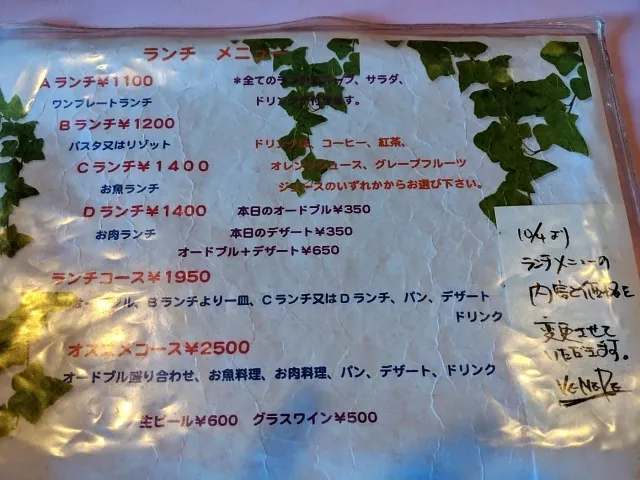 ランチ メニュー
Aランチ¥1100
*全てのランチにスープ、サラダ、
ワンプレートランチ
ドリンクが付きます。
Bランチ¥1200
パスタ又はリゾット
ドリンクは、コーヒー、紅茶、
Cランチ¥1400
オレンジジュース、グレープフルーツ
お魚ランチ
ジュースのいずれかからお選び下さい。
Dランチ¥1400
本日のオードブル¥350
お肉ランチ
本日のデザート¥350
オードブル+デザート¥650
ランチコース¥1950
オードブル、Bランチより一皿、Cランチ又はDランチ、パン、デザート
ドリンク
オススメコース¥2500
オードブル盛り合わせ、お魚料理、お肉料理、パン、デザート、ドリンク
生ビール¥600 グラスワイン¥500
10/4より
ランチメニューの
内容と価格を
変更させて
いただきます。